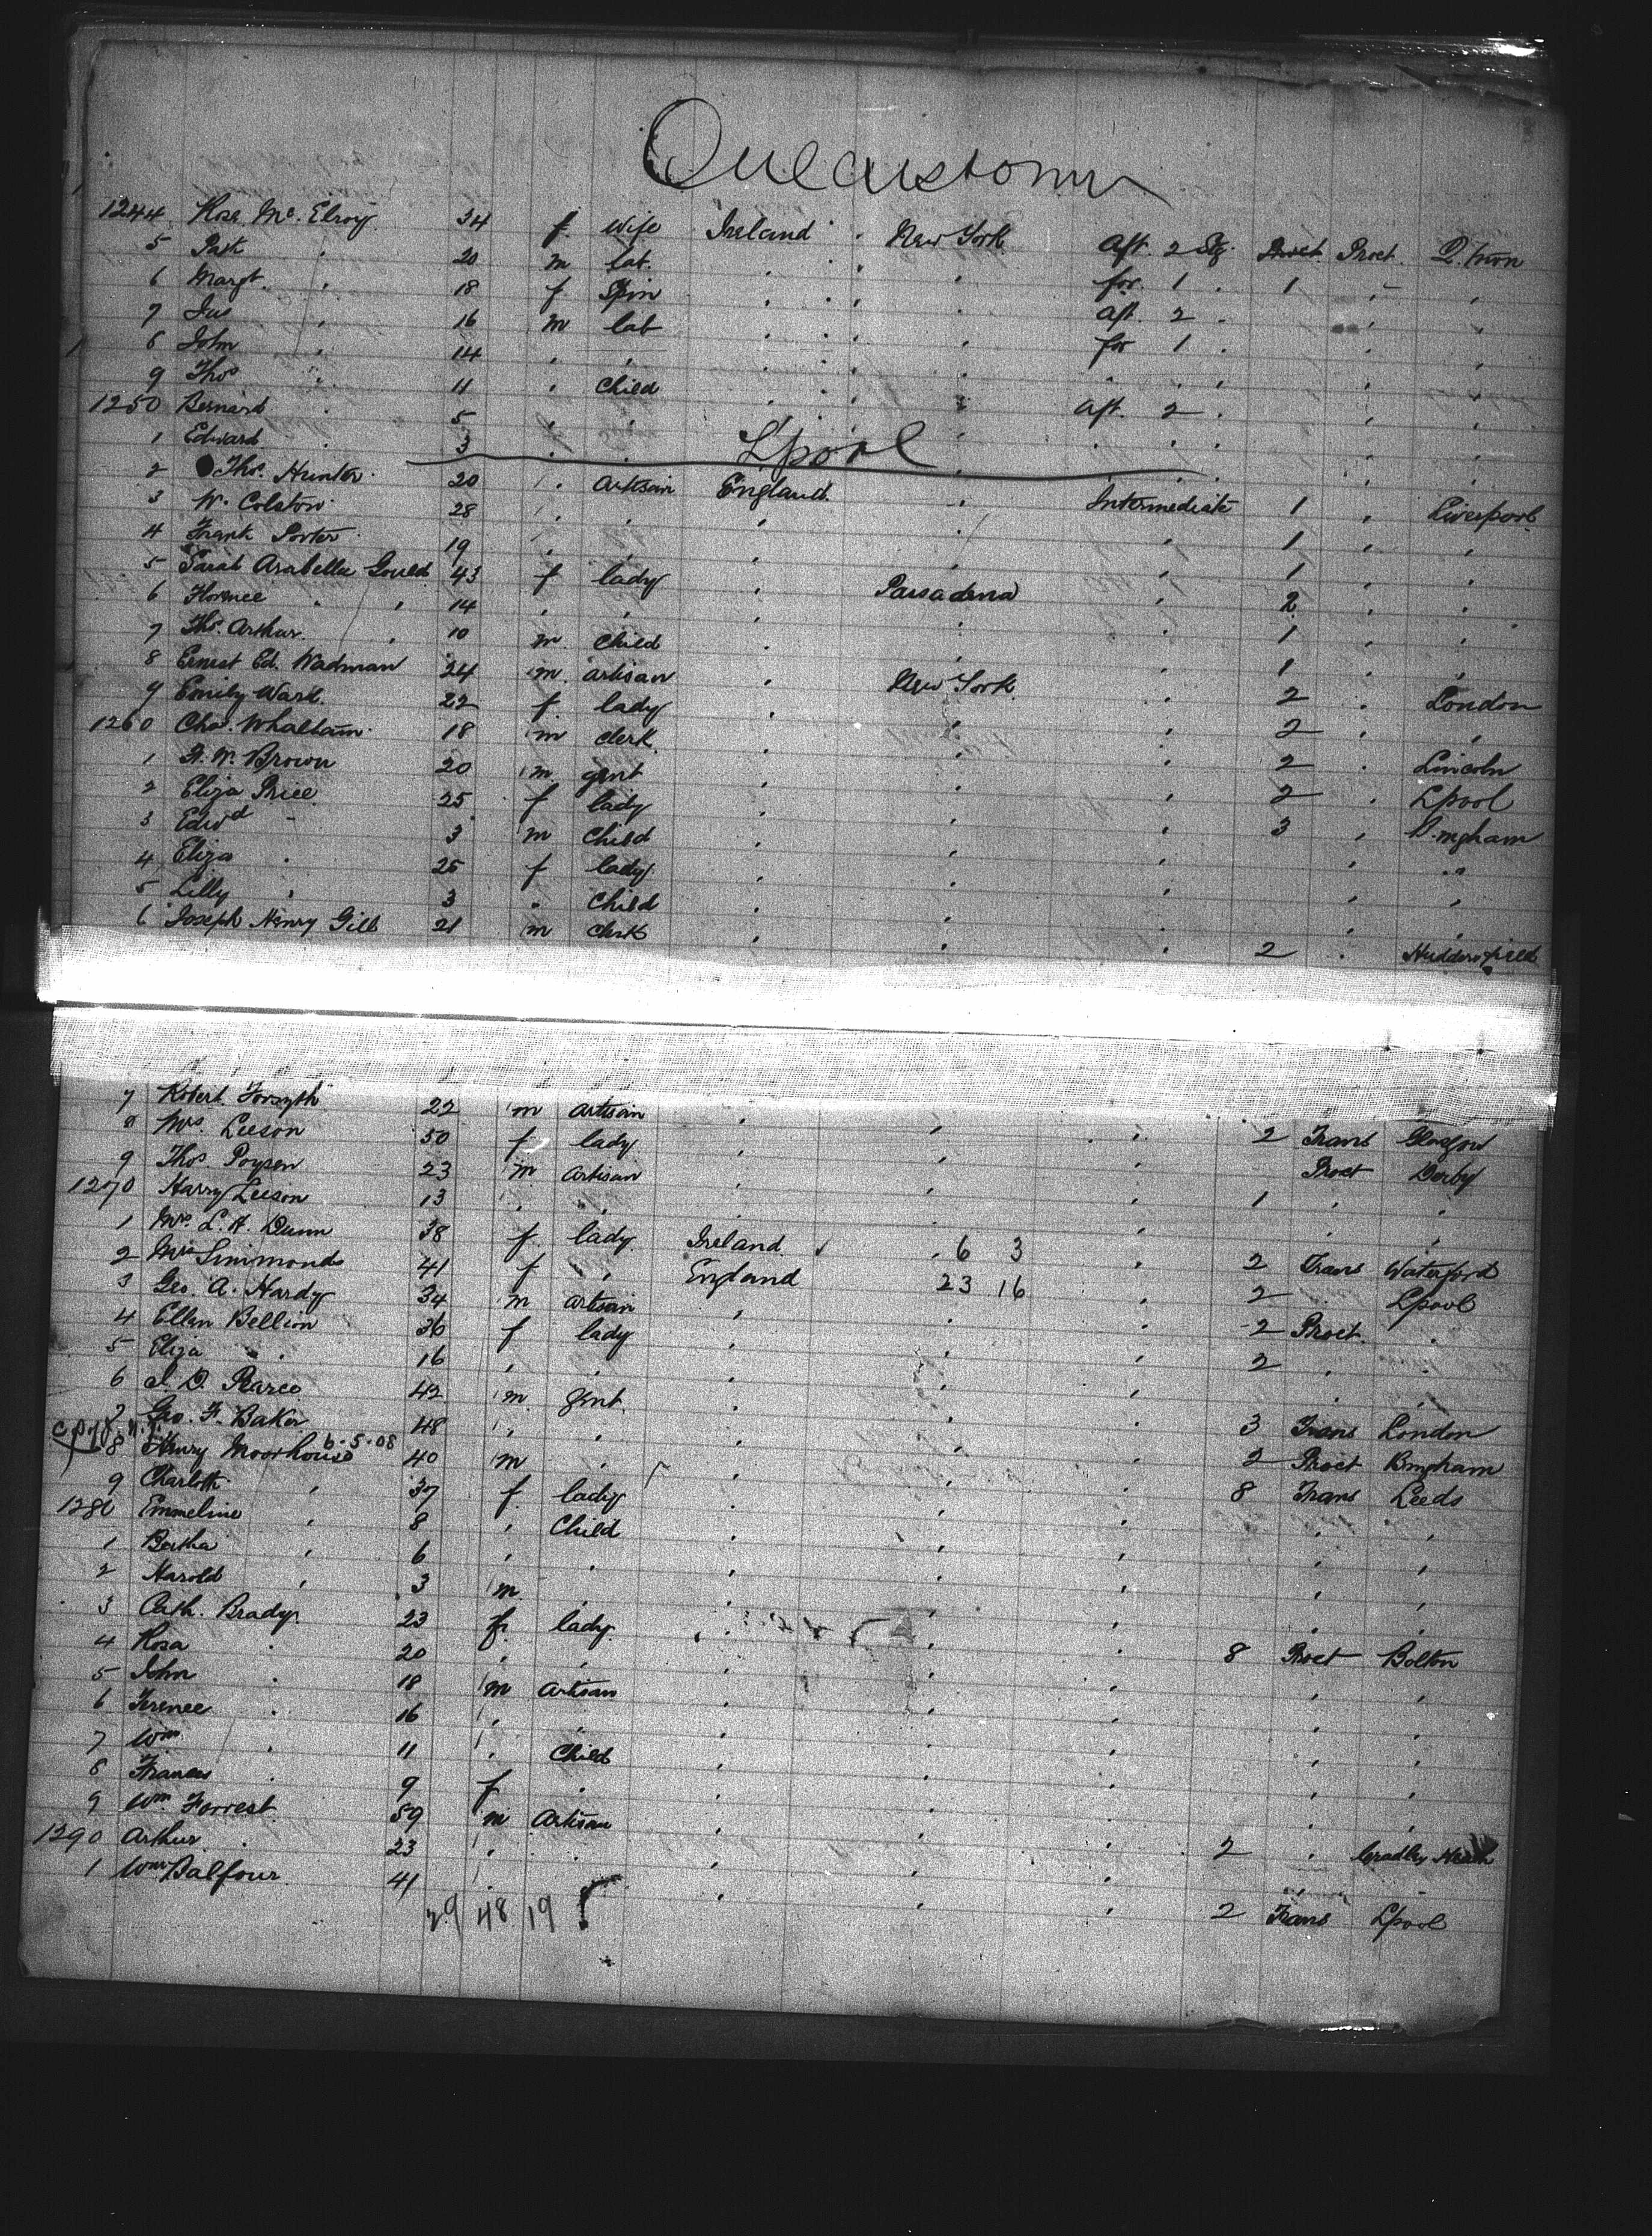 Queenstown
1244 Rose Mc. Elroy 34 f. Wife Ireland New York Aft. 2 Stg. Prot. Prot. Q. town
5 Patk " 20 m lab. " " for 1 " 1 " "
6 Margt. " 18 f Spin " " aft. 2 " " "
7 Jas " 16 m lab " " for 1 " " "
8 John " 14 " " " " " " " " "
9 Thos " 11 " Child " " aft. 2 " " "
1250 Bernard " 5 " " " " " " " "
1 Edward " 3 " " " " " " " "
L'pool
2 Thos. Hunter 20 " Artisan England " Intermediate 1 " Liverpool
3 W. Colston 28 " " " " " 1 " "
4 Frank Porter 19 " " " " " 1 " "
5 Sarah Arabella Gould 43 f lady " Passadena " 2 " "
6 Florence " " 14 " " " " " 1 " "
7 Thos. Arthur " 10 m child " " " 1 " "
8 Ernest Ed. Wadman 24 m. artisan " New York " 2 " London
9 Emily Ward 22 f lady " " " 2 " "
1260 Chas. Whaltam 18 m clerk " " " 2 " Lincoln
1 F. W. Brown 20 m gent " " " 2 " Lpool
2 Eliza Price 25 f lady " " " 3 " B.mgham
3 Edwd " 3 m Child " " " " "
4 Eliza " 25 f lady " " " " "
5 Lilly " 3 " Child " " " " "
6 Joseph Henry Gill 21 m Clerk " " " 2 " Huddersfield
7 Robert Forsyth 22 m Artisan " " " 2 Trans Glasgow
8 Mrs. Leeson 50 f lady " " " Prot Derby
9 Thos. Poysen 23 m Artisan " " " 1 " "
1270 Harry Leeson 13 " " " " " " "
1 Mrs L. A. Dunn 38 f lady Ireland " 6 3 " 2 Trans Waterford
2 Mrs Simmonds 41 f " England 23 16 " 2 " Lpool
3 Geo. A. Hardy 34 m artisan " " " 2 Prot "
4 Ellen Bellion 36 f lady " " " 2 " "
5 Eliza " 16 " " " " " " "
6 J. D. Pearce 42 m gent. " " " 3 Trans London
7 Geo. F. Baker 48 " " " " " 2 Prot Bmgham
6-5-08
8 Henry Moorhouse 40 m " " " " 8 Trans Leeds
9 Charlotte " 37 f. lady " " " " "
1280 Emmeline " 8 " Child " " " " "
1 Bertha " 6 " " " " " " "
2 Harold " 3 m " " " " " "
3 Cath. Brady 23 f. lady " " " 8 Prot Bolton
4 Rosa " 20 " " " " " " "
5 John " 18 m Artisan " " " " "
6 " 16 " " " " " " "
7 Wm " 11 " Child " " " " "
8 Frances " 9 f " " " " " "
9 Wm Forrest 59 m Artisan " " " 2 " Cradley Heath
1290 Arthur " 23 " " " " "
1 Wm Balfour 41 " " " " 2 Trans Lpool
29 48 19